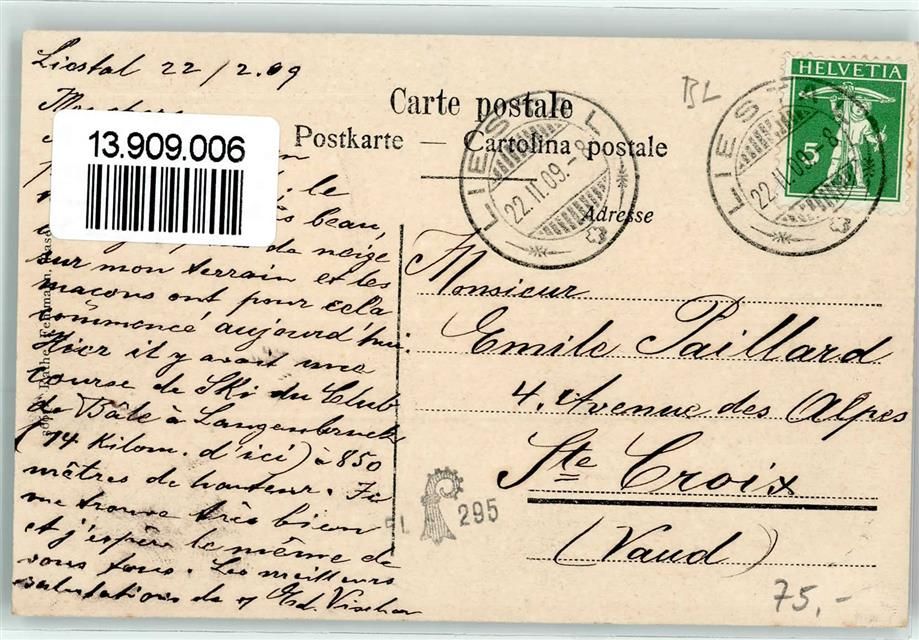 Liestal 22/2.09
13.909.006
le
beau,
de neige
sur mon terrain et les
maçons ont pour cela
commencé aujourd'hui.
Hier il y avait une
course de Ski du Club
de Bâle à Langenbruck
(14 Kilom. d'ici) à 850
mètres de hauteur. Je
me trouve très bien
et j'espère le même de
vous tous. Les meilleurs
salutations de Ed. Vischer
Carte postale
Postkarte — Cartolina postale
Adresse
BL
HELVETIA
5
LIESTAL
22.II.09.-8
LIESTAL
22.II.09.-8
Monsieur
Emile Paillard
4, Avenue des Alpes
Ste Croix
(Vaud)
295
75,-